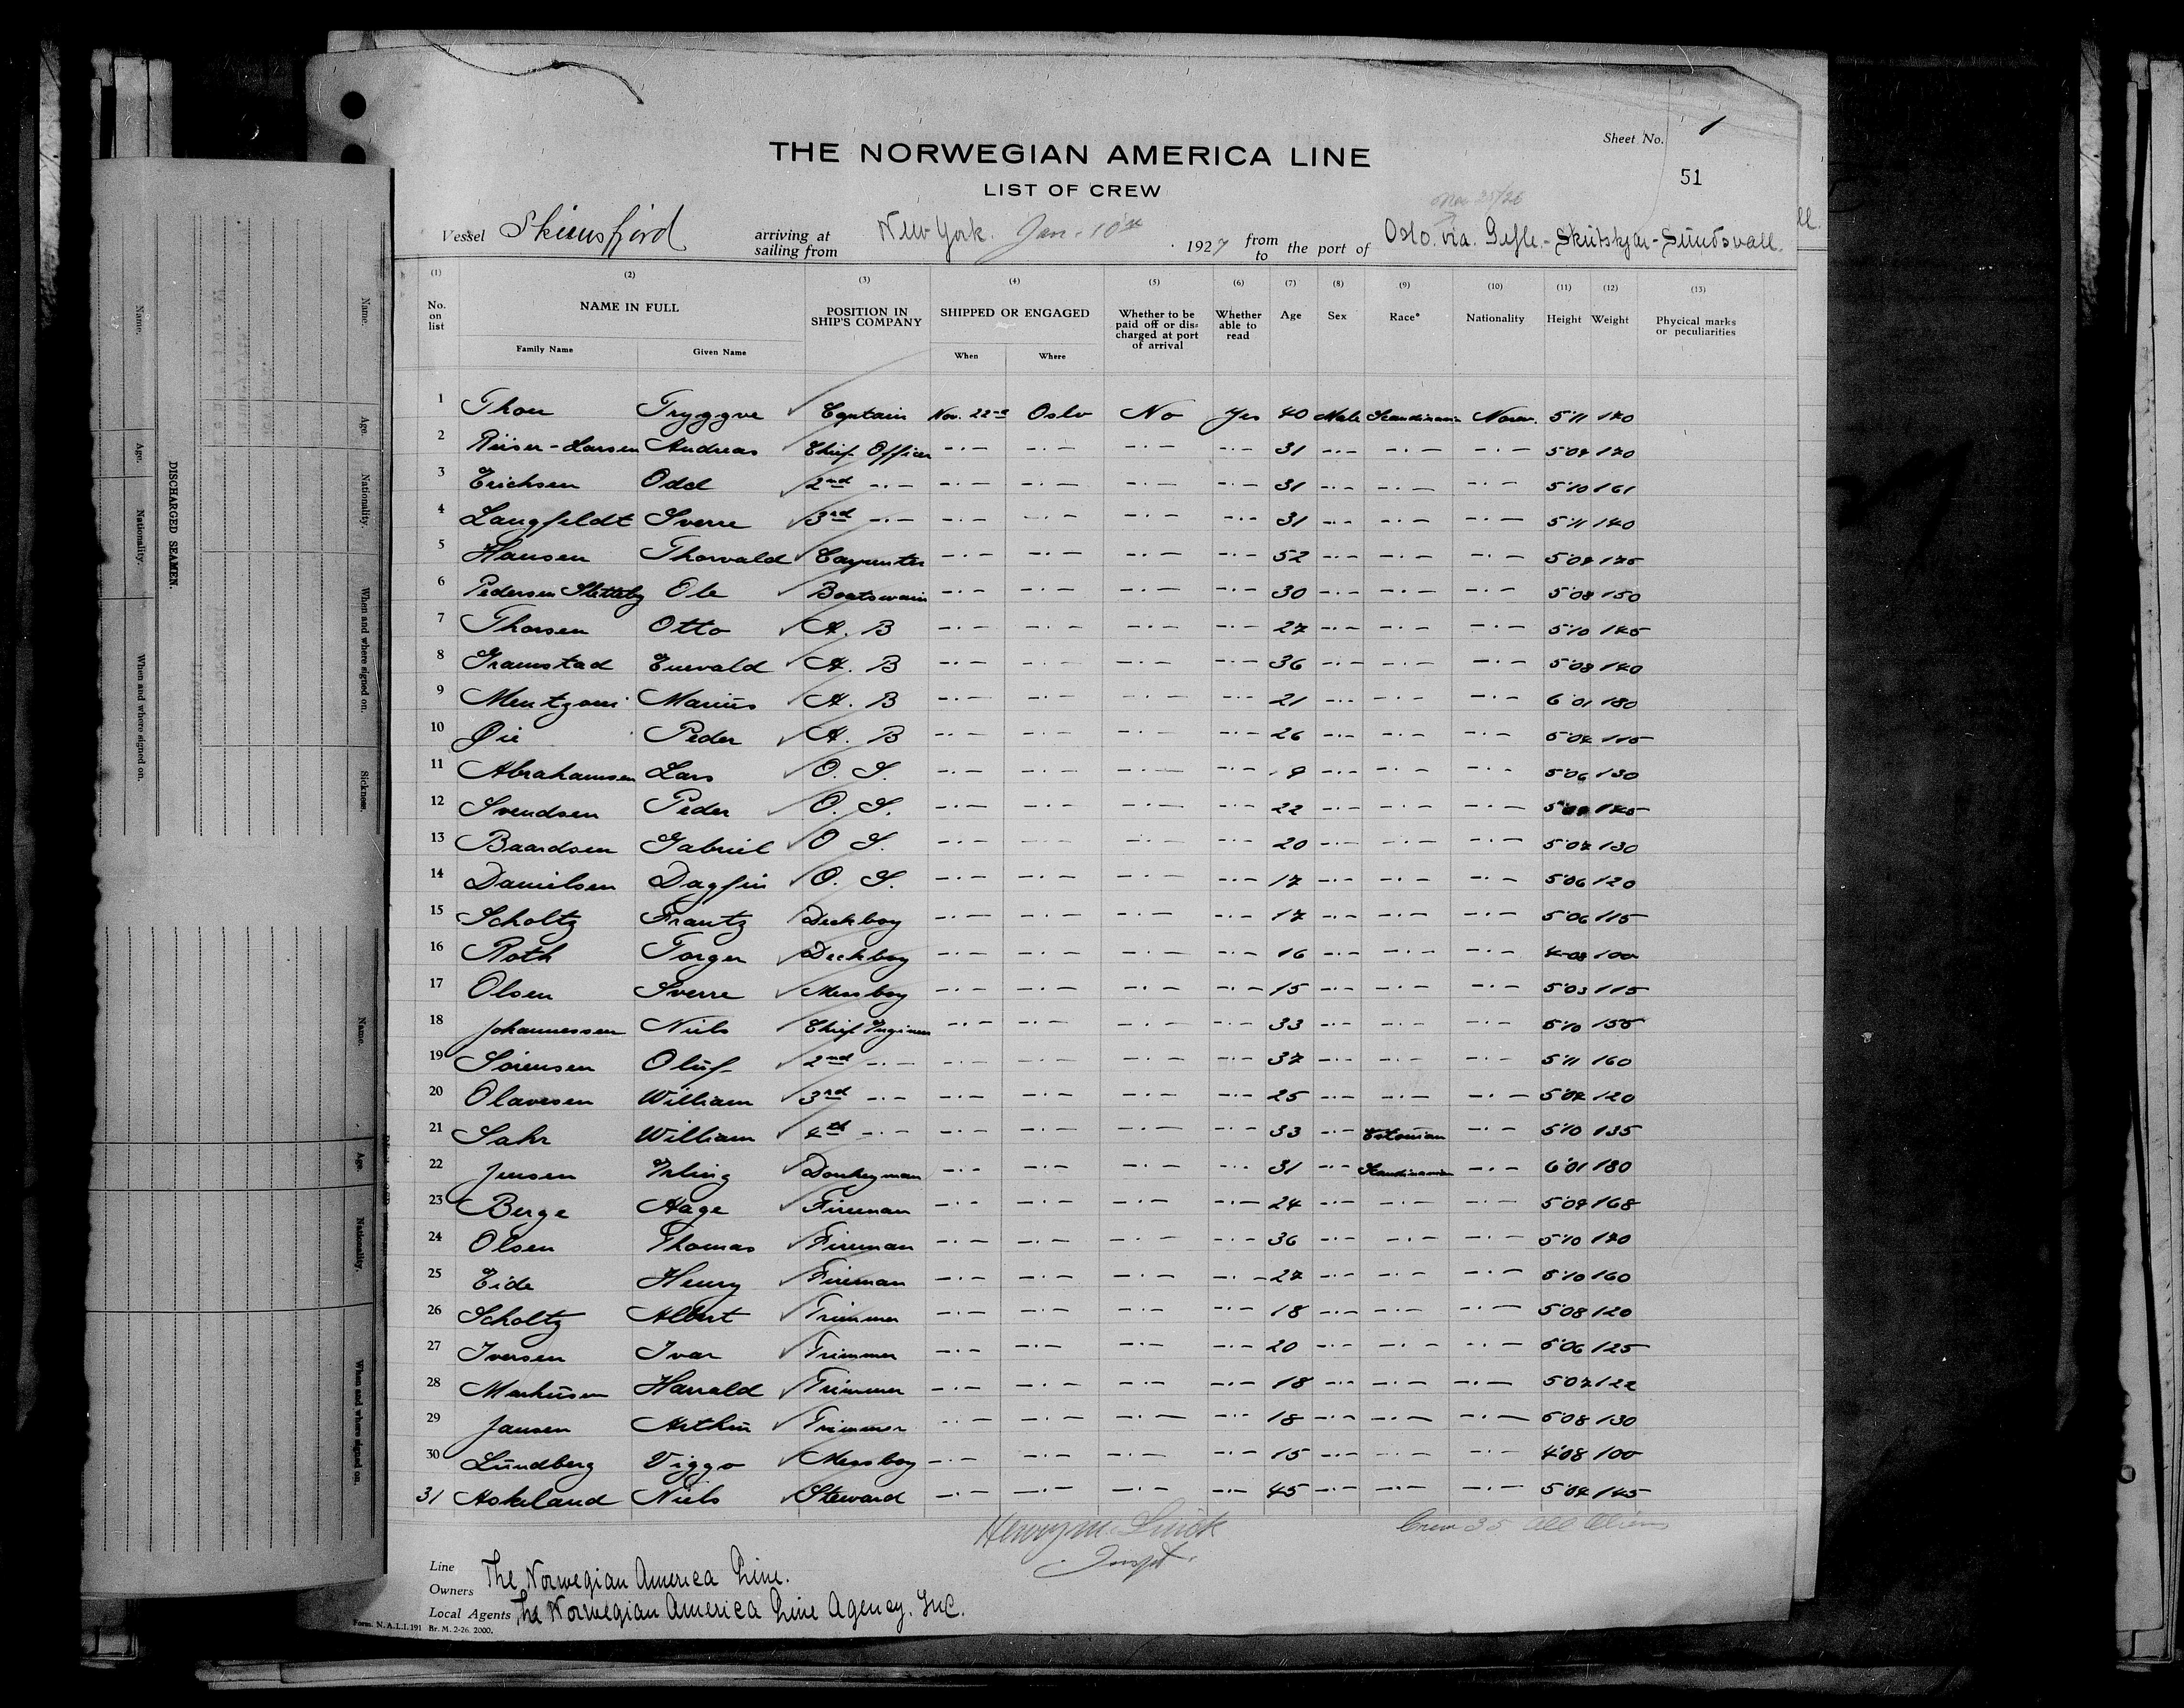 Sheet No. 1
51
THE NORWEGIAN AMERICA LINE
LIST OF CREW
Vessel Skiensfjord arriving at sailing from New York. Jan. 10th 1927 from to the port of Oslo. via. Gefle.-Skutskjær-Sundsvall.
(1) (2) (3) (4) (5) (6) (7) (8) (9) (10) (11) (12) (13)
No. on list NAME IN FULL POSITION IN SHIP'S COMPANY SHIPPED OR ENGAGED Whether to be paid off or dis-charged at port of arrival Whether able to read Age Sex Race* Nationality Height Weight Phycical marks or peculiarities
Family Name Given Name When Where
1 Thon Tryggve Captain Nov. 22nd Oslo No Yes 40 Male Scandinavian Norw. 5'11 170
2 Riiser-Larsen Andreas Chief Officer -.- -.- -.- -.- 31 -.- -.- -.- 170
3 Erichsen Odd 2nd -.- -.- -.- -.- -.- 31 -.- -.- -.- 5'10 161
4 Langfeldt Sverre 3rd -.- -.- -.- -.- -.- 31 -.- -.- -.- 5'11 140
5 Hansen Thorvald Carpenter -.- -.- -.- -.- 52 -.- -.- -.- 175
6 Pedersen Ole Boatswain -.- -.- -.- -.- 30 -.- -.- -.- 5'08 150
7 Thorsen Otto A. B -.- -.- -.- -.- 27 -.- -.- -.- 5'10 145
8 Gramstad Enevald A. B -.- -.- -.- -.- 36 -.- -.- -.- 5'08 140
9 Mentzoni Marius A. B -.- -.- -.- -.- 21 -.- -.- -.- 6'01 180
10 Øie Peder A. B -.- -.- -.- -.- 26 -.- -.- -.- 115
11 Abrahamsen Lars O. S. -.- -.- -.- -.- -.- -.- -.- 5'06 130
12 Svendsen Peder O. S. -.- -.- -.- -.- 22 -.- -.- -.- 145
13 Baardsen Gabriel O S. -.- -.- -.- -.- 20 -.- -.- -.- 5'07 130
14 Danielsen Dagfin O. S. -.- -.- -.- -.- 17 -.- -.- -.- 5'06 120
15 Scholtz Frantz Deckboy -.- -.- -.- -.- 17 -.- -.- -.- 5'06 115
16 Roth Torger Deckboy -.- -.- -.- -.- 16 -.- -.- -.- 4'08 100
17 Olsen Sverre Messboy -.- -.- -.- -.- 15 -.- -.- -.- 5'03 115
18 Johannessen Niels Chief Engineer -.- -.- -.- -.- 33 -.- -.- -.- 5'10 155
19 Sørensen Oluf 2nd -.- -.- -.- -.- -.- 37 -.- -.- -.- 5'11 160
20 Olavesen William 3rd -.- -.- -.- -.- -.- 25 -.- -.- -.- 5'07 120
21 Sahr William 4th -.- -.- -.- -.- -.- 33 -.- Estonian -.- 5'10 135
22 Jensen Erling Donkeyman -.- -.- -.- -.- 31 -.- Scandinavian -.- 6'01 180
23 Berge Aage Fireman -.- -.- -.- -.- 24 -.- -.- -.- 5'09 168
24 Olsen Thomas Fireman -.- -.- -.- -.- 36 -.- -.- -.- 5'10 170
25 Eide Henry Fireman -.- -.- -.- -.- 27 -.- -.- -.- 5'10 160
26 Scholtz Albert Trimmer -.- -.- -.- -.- 18 -.- -.- -.- 5'08 120
27 Iversen Ivar Trimmer -.- -.- -.- -.- 20 -.- -.- -.- 5'06 125
28 Markusen Harrald Trimmer -.- -.- -.- -.- 18 -.- -.- -.- 5'07 122
29 Jansen Arthur Trimmer -.- -.- -.- -.- 18 -.- -.- -.- 5'08 130
30 Lundberg Viggo Messboy -.- -.- -.- -.- 15 -.- -.- -.- 4'08 100
31 Askeland Niels Steward -.- -.- -.- -.- 45 -.- -.- -.- 145
Crew 35 all aliens
Henry M. Inspt.
Line The Norwegian America Line.
Owners
Local Agents The Norwegian America Line Agency. Inc.
Form. N.A.L.I.191 Br. M. 2-26. 2000.
DISCHARGED SEAMEN.
Name. Age. Nationality. When and where signed on.
Name. Age. Nationality. When and where signed on. Sickness.
Name. Age. Nationality. When and where signed on.